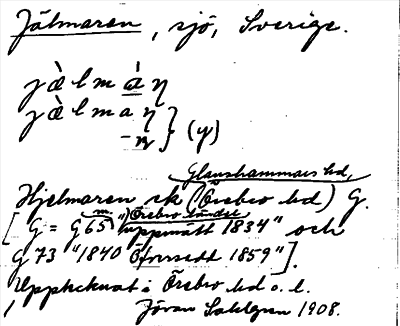 Jälmaren, sjö, Sverige.
jæ̀lmàŋ
jæ̀lmaŋ
-n̥ } (y)
Glanshammars hd,
Hjelmaren sk (Örebro hd) G.
m. Örebro ländel
[G = G 65 "uppmätt 1834" och
G 73 "1840 Öfversedt 1859"].
Upptecknat i Örebro hd o. l.
Jöran Sahlgren 1908.